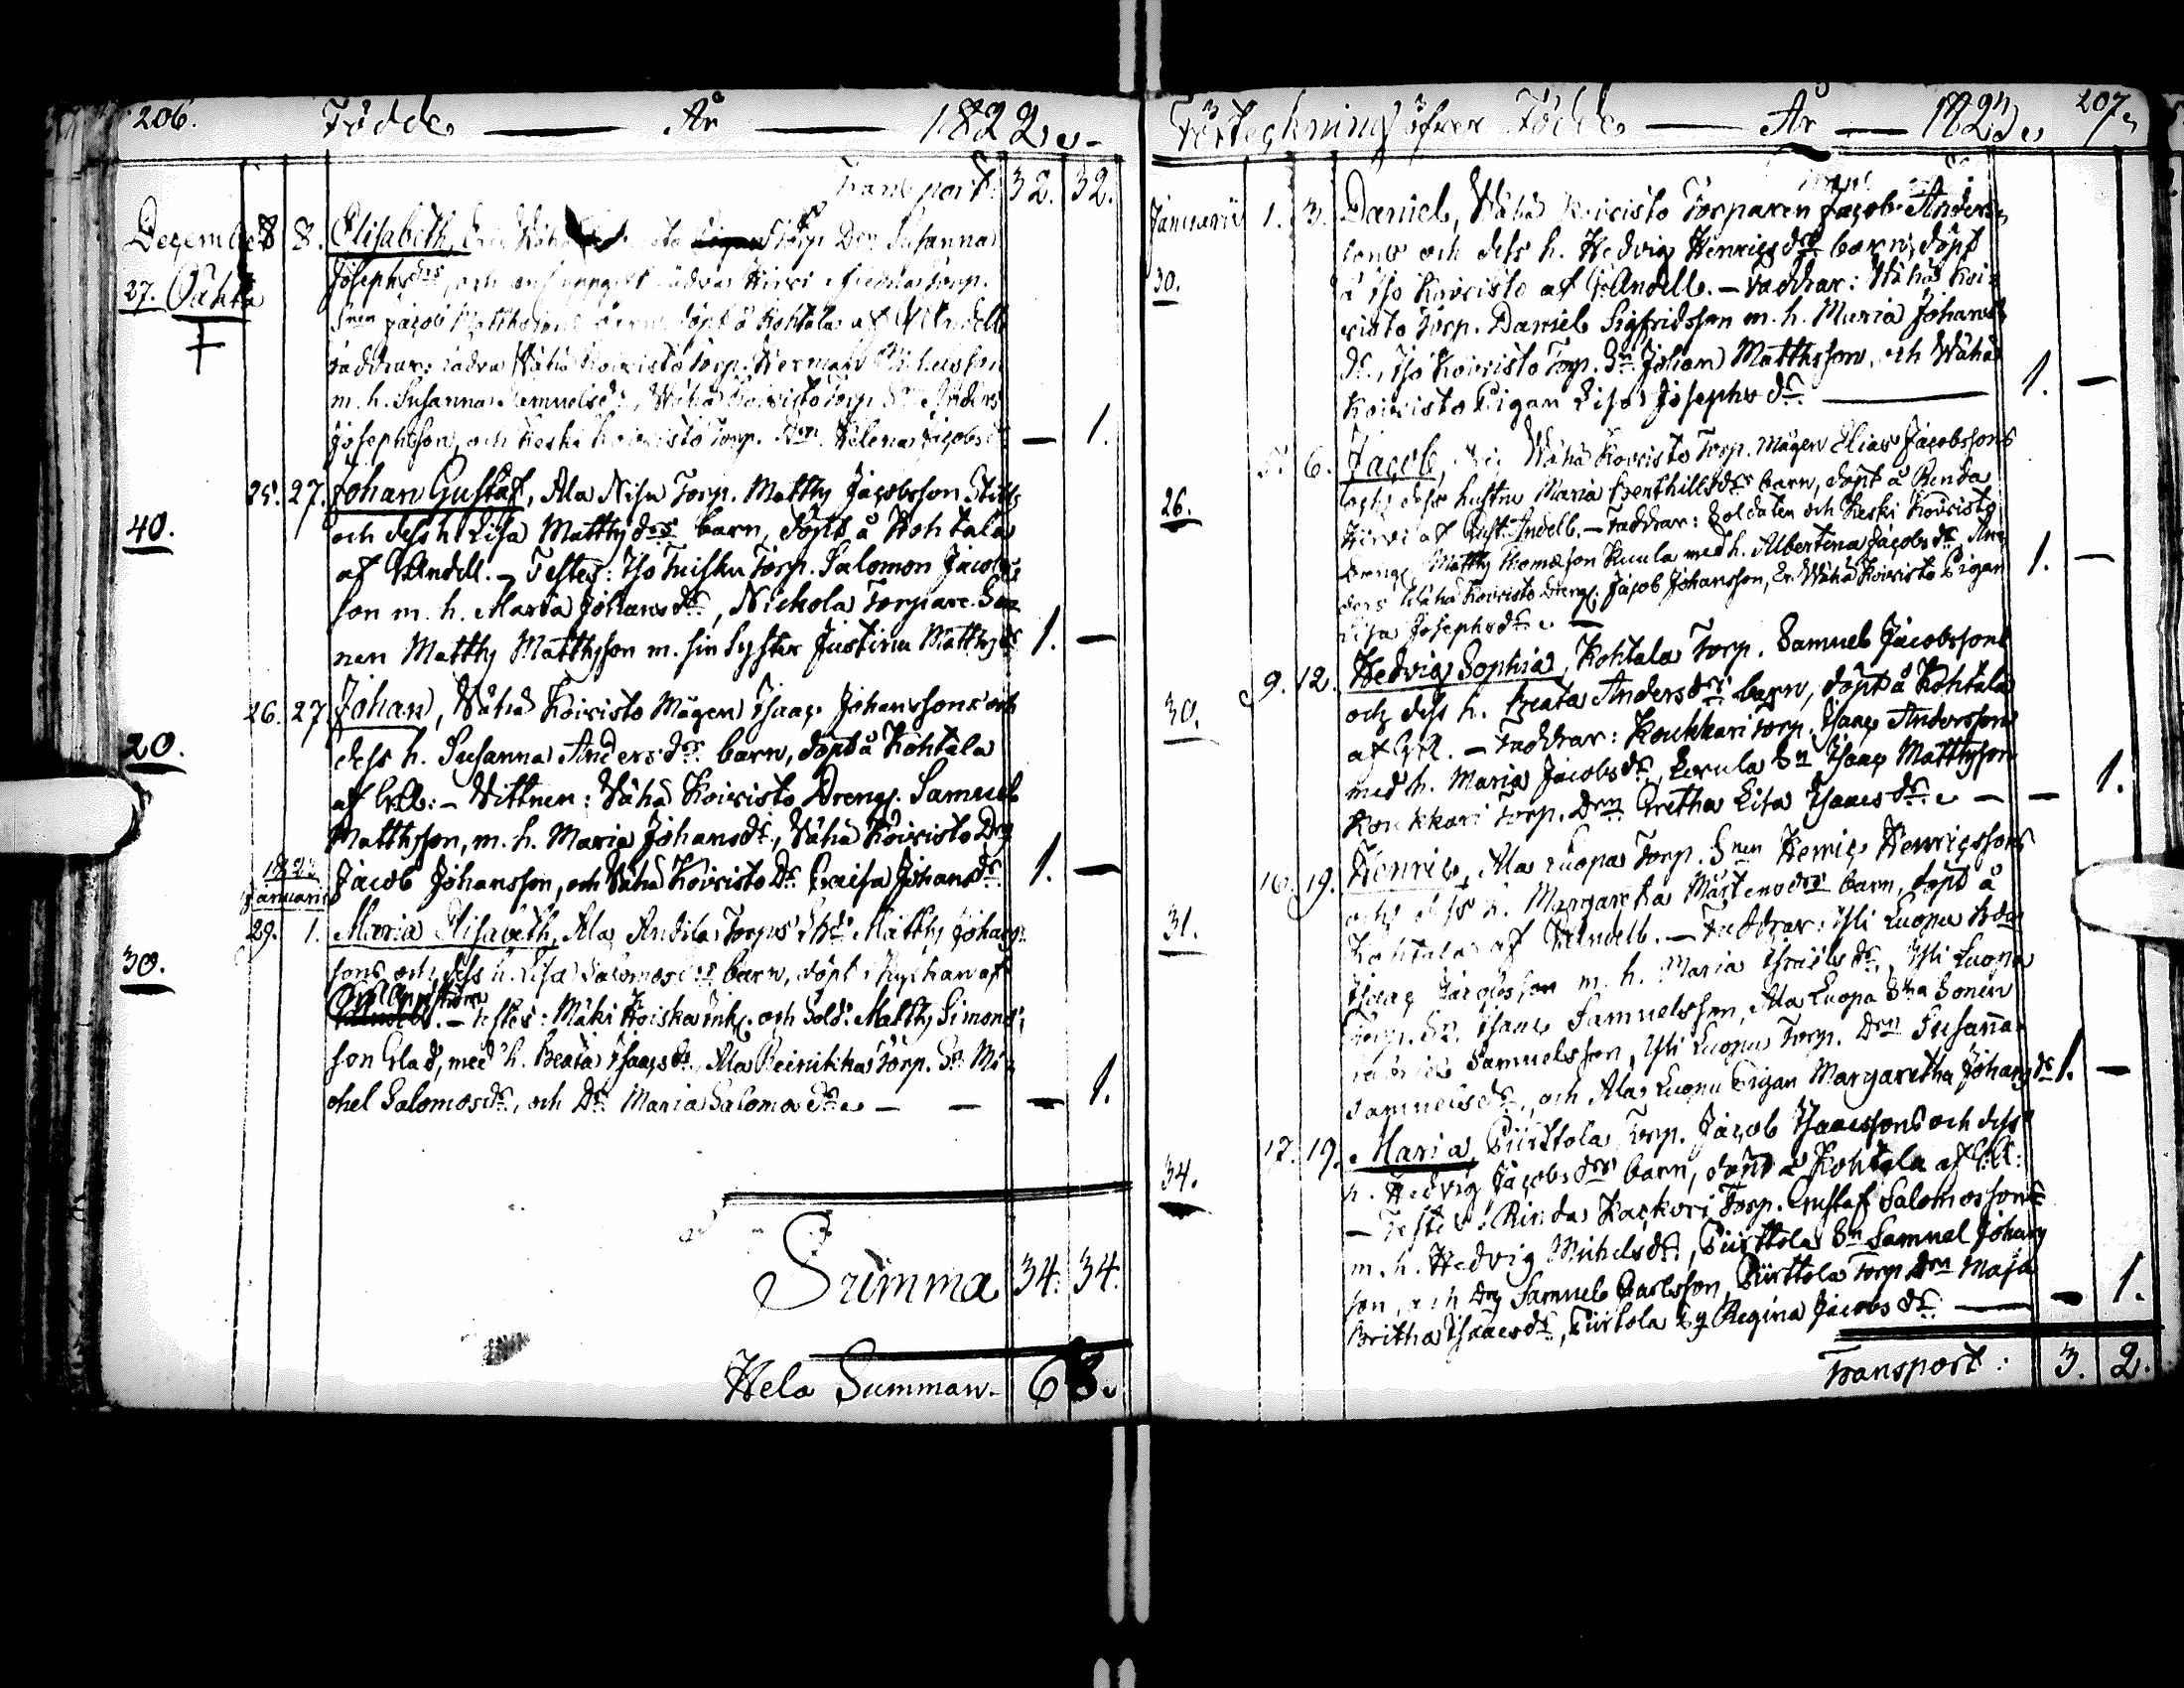 206. Födde — År — 1822.
Transport. 32. 32.
December 8 8. Elisabeth, Wähä Torp. Drn Susanna
27. Oäkta Josephsdrs, och Torp.
Snen Jacob Matthssons barn, döpt å Kohtala af Andell
Faddrar: Wähä Koivisto Torp. Herman Michelsson
m. h. Susanna Samuelsdr, Wähä Koivisto Torp. Sn Anders
Josephsson, och Keski Koivisto Torp. Drn Helena Jacobsdr — 1.
25. 27. Johan Gustaf, Ala Nisu Torp. Matthj Jacobsson
40. och dess h Lisa Matthjdrs barn, döpt å Kohtala
af Andell. – Testes: Iso Torp. Salomon Jacobs
son m. h. Maria Johansdr, Nickola Torpare So
nen Matthj Matthjsson m. sin Syster Justina Matthjdr 1. —
26. 27 Johan, Wähä Koivisto Mågen Isaac Johanssons och
20. dess h. Susanna Andersdrs barn, döpt å Kohtala
af – Vittnen: Wähä Koivisto Dreng. Samuel
Matthsson, m. h. Maria Johansdr, Wähä Koivisto Drg
Jacob Johansson, och Wähä Koivisto Dr Caisa Johansdr. 1. —
1823
Januarii
29. 1. Maria Elisabeth, Ala Andila Torps Matthj Johans
30. sons och dess h. Lisa Salomosdrs barn, döpt i Kyrkan af
– Testes: Mäki Koiska Inh. och Sold. Matthj Simons
son Glad, med h. Beata Isaacsdr, Ala Torp. Sn Mi
chel Salomos, och Dr. Maria Salomosdr — — — 1.
Summa 34. 34.
Hela Summan. 68.
Förteckning öfver Födde — År — 1823. 207.
Januarii 1. 3. Daniel, Wähä Koivisto Torparen Jacob Anders
sons och dess h. Hedvig Henricsdrs barn, döpt
30. å Iso Koivisto af G. Andell. – Faddrar: Wähä Koi
visto Torp. Daniel Sigfridsson m. h. Maria Johans
dr, Iso Koivisto Torp. Sn Johan Matthsson, och Wähä
Koivisto Pigan Lisa Josephsdr. — 1. —
5. 6. Jacob, Wähä Koivisto Torp. Mågen Elias Jacobssons
26. och dess hustru Maria Berthillsdrs barn, döpt å Renda
Hirvi af Gust. Andell. – Faddrar: Soldaten och Keski Koivisto
Dreng. Matthj Thomasson Kuula med h. Albertena Jacobsdr, An
ders Wähä Koivisto Dreng. Jacob Johansson, Wähä Koivisto Pigan
Lisa Josephsdr. — 1. —
9. 12. Hedvig Sophia, Kohtala Torp. Samuel Jacobssons
30. och dess h. Beata Andersdrs barn, döpt å Kohtala
af – Faddrar: Koukkari Torp. Isaac Andersson
med h. Maria Jacobsdr, Sn Isaac Matthjsson
Koukkari Torp. Drn Gretha Lisa Isaacsdr. — — 1.
16. 19. Henric, Ala Luopa Torp. Snen Henric Henricssons
31. och dess h. Margaretha Mårtensdrs barn, döpt å
Kohtala af Andell. – Faddrar: Yli Luopa
Isaac m. h. Maria Israelsdr, Yli Luopa
Torp. Sn. Isaac Samuelsson, Ala Luopa Sonen
Samuelsson, Yli Luopa Torp. Drn Susanna
Samuelsdr, och Ala Luopa Pigan Margaretha Johansdr 1. —
17. 19. Maria, Piirttola Torp. Jacob Isaacssons och dess
34. h. Hedvig Jacobsdrs barn, döpt å Kohtala af
– Testes: Rinda Torp. Gustaf Salomosson
m. h. Hedvig Michelsdr, Piirttola Sn Samuel Johans
son, och Drg Samuel Carlsson, Piirttola Torp. Drn Maja
Britha Isaacsdr, Piirtola Pg Regina Jacobsdr — — 1.
Transport: 3. 2.